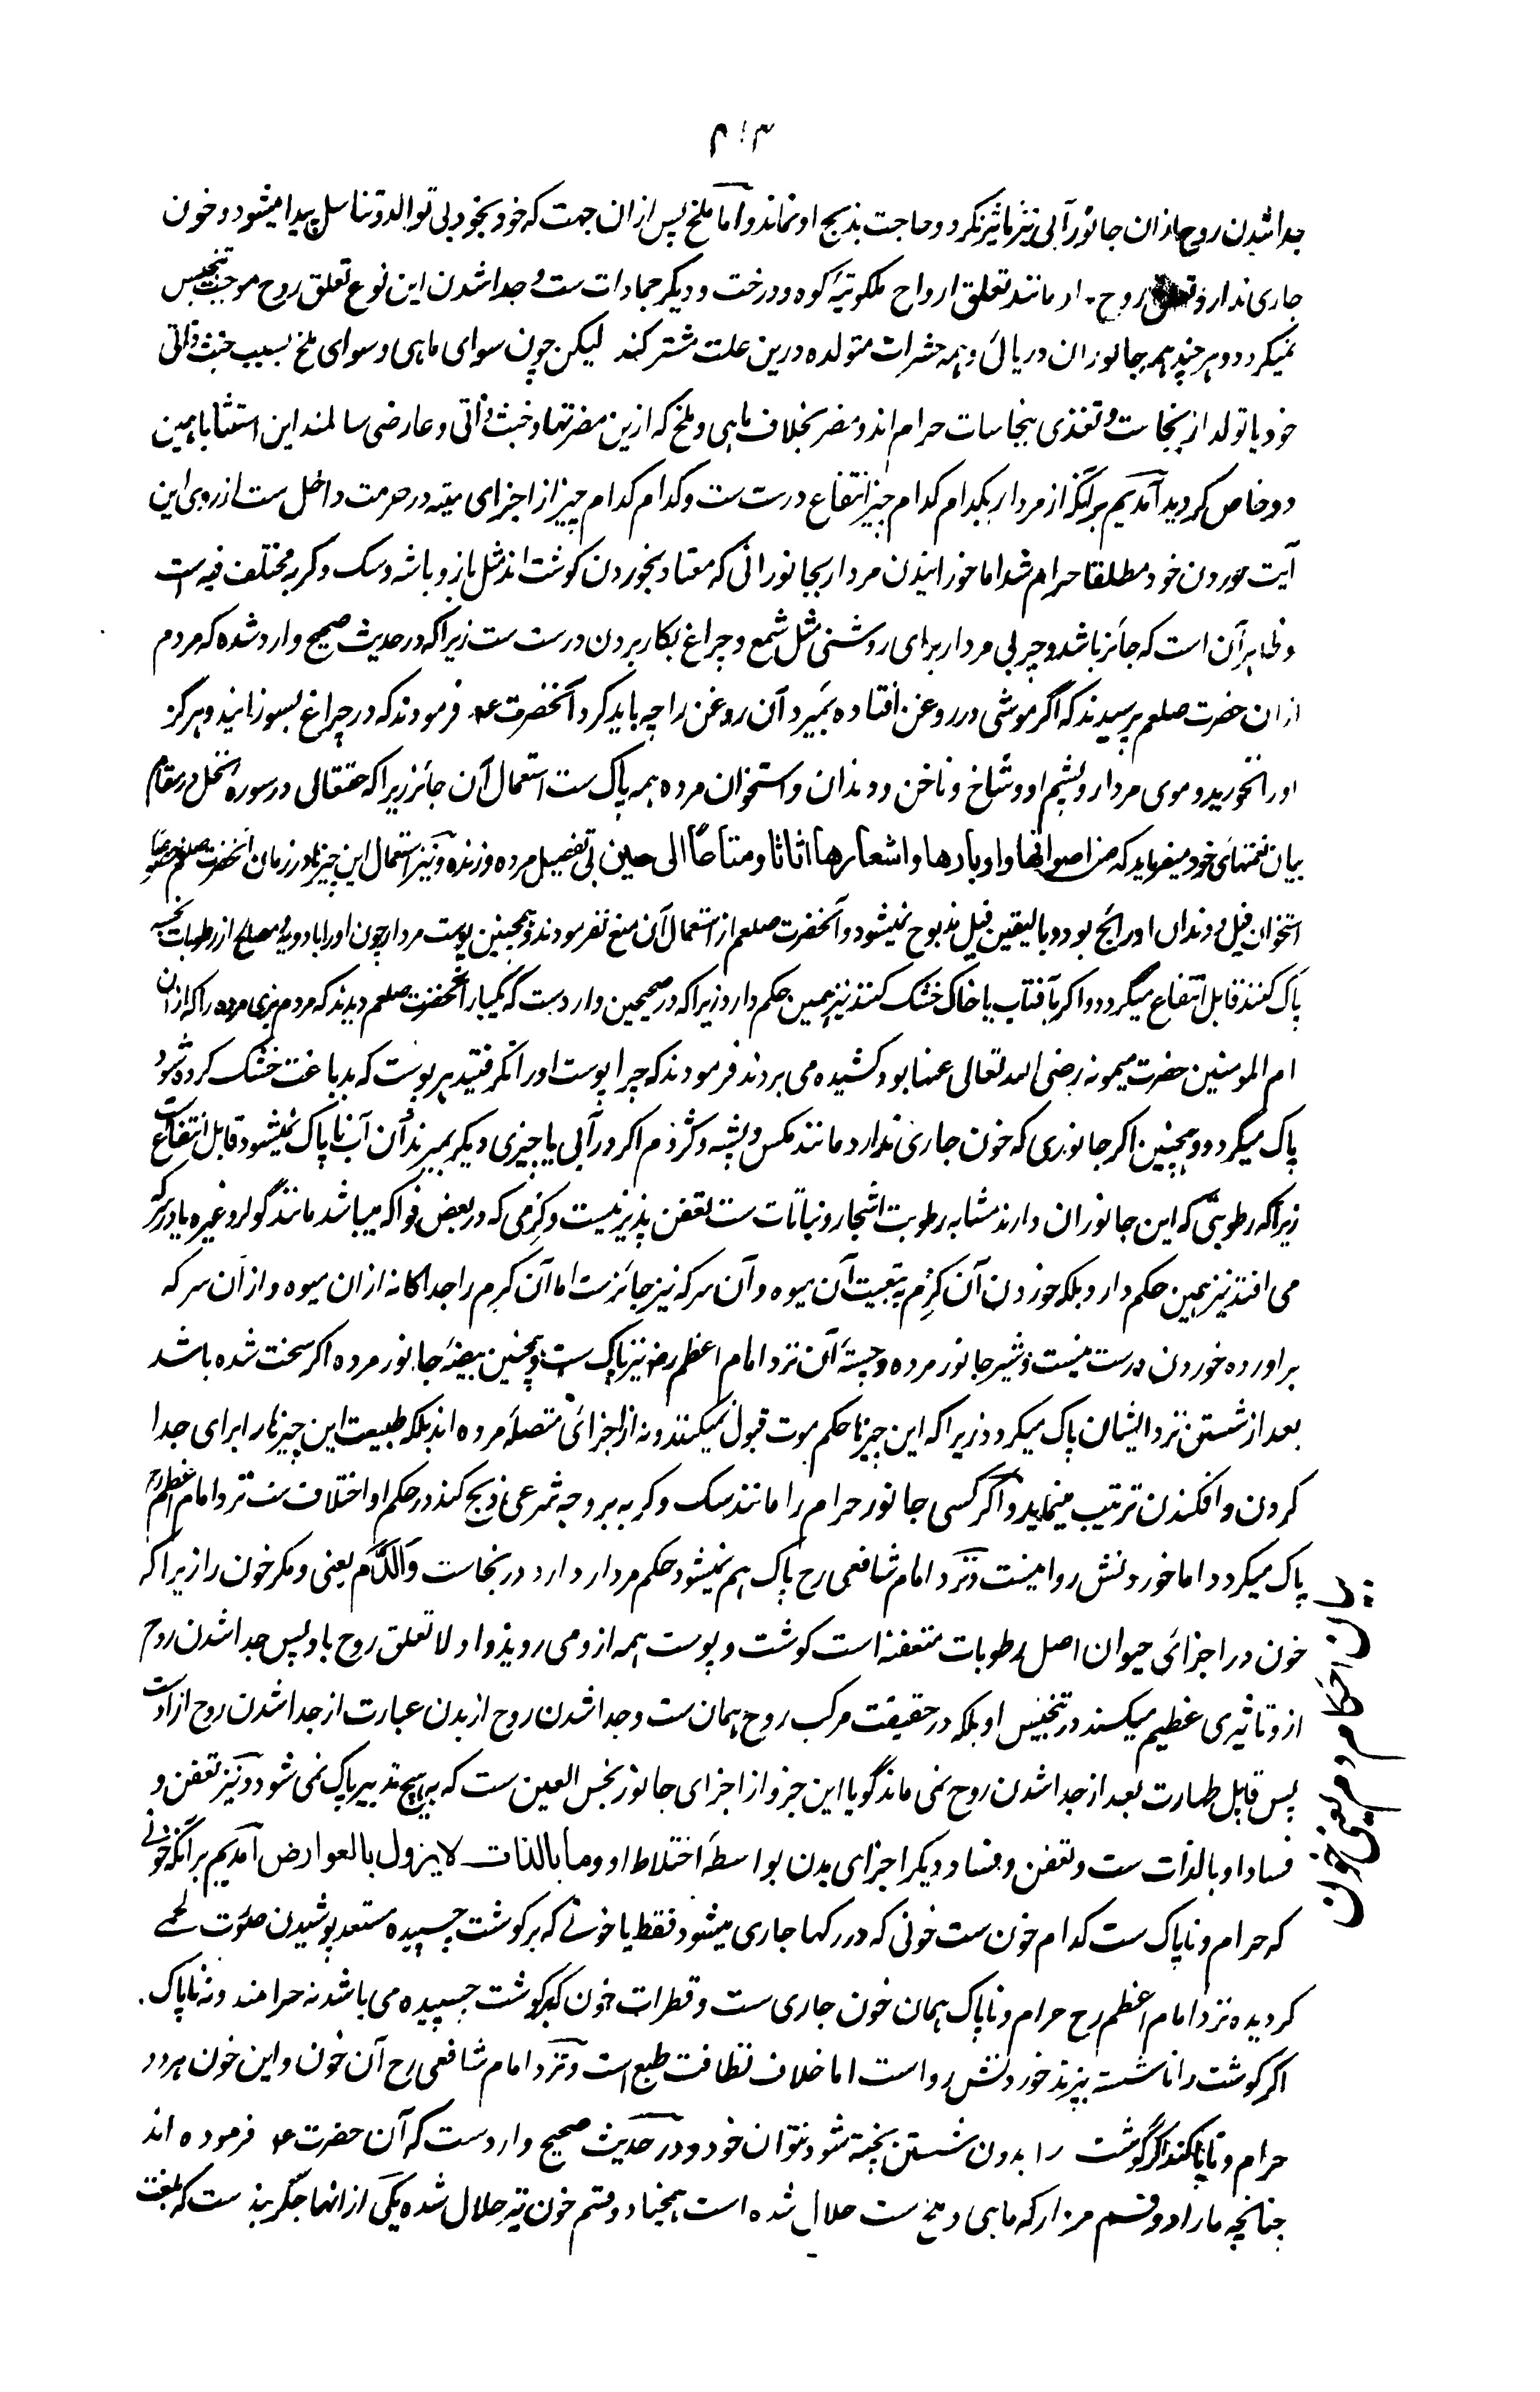 جدا شدن روح ازان جانور آبی نیز تاثیر نکرد و حاجت بذبح او نماند و اما ملخ پس ازان جهت که خود بخود بی توالد و تناسل پیدا میشود و خون
جاری ندارد و تعلق روح او مانند تعلق ارواح ملکوتیهٔ کوه و درخت و دیگر جمادات ست و جدا شدن این نوع تعلق روح موجب تنجیس
نمیگردد و هر چند همه جانوران دریائی و همه حشرات متولده درین علت مشترکند لیکن چون سوای ماهی و سوای ملخ بسبب خبث ذاتی
خود یا تولد از نجاست و تغذی بنجاسات حرام اند و مضر بخلاف ماهی و ملخ که ازین مضرتها و خبث ذاتی و عارضی سالمند این استثنا باهمین
دو خاص گردید آمدیم برآنکه از مردار بکدام کدام چیز انتفاع درست ست و کدام کدام چیز از اجزای میته در حرمت داخل ست از روی این
آیت خوردن خود مطلقا حرام شد اما خورانیدن مردار بجانورانی که معتاد بخوردن گوشت اند مثل باز و باشه و سگ و گربه مختلف فیه است
و ظاهر آن است که جائز باشد و چربی مردار برای روشنی مثل شمع و چراغ بکار بردن درست ست زیرا که در حدیث صحیح وارد شده که مردم
ازان حضرت صلعم پرسیدند که اگر موشی در روغن افتاده بمیرد آن روغن را چه باید کرد آنحضرت ء فرمودند که در چراغ بسوزانید و هرگز
او را نخورید و موی مردار و پشم او و شاخ و ناخن و دندان و استخوان مرده همه پاک ست استعمال آن جائز زیرا که حقتعالی در سوره نحل در مقام
بیان نعمتهای خود میفرماید که من اصوافها و اوبارها و اشعارها اثاثا و متاعا الی حین بی تفصیل مرده و زنده و نیز استعمال این چیزها در زمان آنحضرت صلعم خصوصا
استخوان فیل و دندان او رائج بود و بالیقین فیل مذبوح نمیشود و آنحضرت صلعم از استعمال آن منع نفرمودند و همچنین پوست مردار چون او را بادویه مصلح از رطوبات نجسه
پاک کنند قابل انتفاع میگردد و اگر بآفتاب یا خاک خشک کنند نیز همین حکم دارد زیرا که در صحیحین وارد ست که یکبار آنحضرت صلعم دیدند که مردم بزی مرده را که ازان
ام المومنین حضرت میمونه رضی الله تعالی عنها بود کشیده می بردند فرمودند که چرا پوست او را نگرفتید هر پوست که بدباغت خشک کرده شود
پاک میگردد و همچنین اگر جانوری که خون جاری ندارد مانند مگس و پشه و کژدم اگر در آبی یا چیزی دیگر بمیرند آن آب ناپاک نمیشود قابل انتفاع ست
زیرا که رطوبتی که این جانوران دارند مشابه رطوبت اشجار و نباتات ست تعفن پذیر نیست و کرمی که در بعض فواکه میباشد مانند گولر و غیره یا در سرکه
می افتد نیز همین حکم دارد بلکه خوردن آن کرم به تبعیت آن میوه و آن سرکه نیز جائز ست اما آن کرم را جداگانه ازان میوه و ازان سرکه
برآورده خوردن درست نیست و شیر جانور مرده و چستهٔ آن نزد امام اعظم رض نیز پاک ست و همچنین بیضهٔ جانور مرده اگر سخت شده باشد
بعد از شستن نزد ایشان پاک میگردد زیرا که این چیزها حکم موت قبول نمیکنند و نه از اجزائی متصلهٔ مرده اند بلکه طبیعت این چیزها را برای جدا
کردن و افکندن ترتیب مینماید و اگر کسی جانور حرام را مانند سگ و گربه بر وجه شرعی ذبح کند در حکم او اختلاف ست نزد امام اعظم رح
پاک میگردد اما خوردنش روا نیست و نزد امام شافعی رح پاک هم نمیشود حکم مردار دارد در نجاست وَالدَّمَ یعنی و مگر خون را زیرا که
خون در اجزائی حیوان اصل رطوبات متعفنه است گوشت و پوست همه ازو می روید و اولا تعلق روح باو پس جدا شدن روح
ازو تاثیری عظیم میکند در تنجیس او بلکه در حقیقت مرکب روح همان ست و جدا شدن روح از بدن عبارت از جدا شدن روح ازانست
پس قابل طهارت بعد از جدا شدن روح نمی ماند گویا این جزو از اجزای جانور نجس العین ست که بهیچ تدبیر پاک نمی شود و نیز تعفن و
فساد او بالذات ست و تعفن و فساد دیگر اجزای بدن بواسطهٔ اختلاط او وما بالذات لا یزول بالعوارض آمدیم برآنکه خونی
که حرام و ناپاک ست کدام خون ست خونی که در رگها جاری میشود فقط یا خونے که بر گوشت چسپیده مستعد پوشیدن صورت لحمے
گردیده نزد امام اعظم رح حرام و ناپاک همان خون جاری ست و قطرات خون که بر گوشت چسپیده می باشد نه حرامند و نه ناپاک .
اگر گوشت را ناشسته بپزند خوردنش رواست اما خلاف نظافت طبع است و نزد امام شافعی رح آن خون و این خون هر دو
حرام و ناپاکند اگر گوشت را بدون شستن پخته شود نتوان خورد و در حدیث صحیح وارد ست که آن حضرت ء فرموده اند
چنانچه ما را دو قسم مردار که ماهی و ملخ ست حلال شده است همچنان دو قسم خون نیز حلال شده یکی ازانها جگر بند ست که بلغت
بیان احکام دم یعنی خون